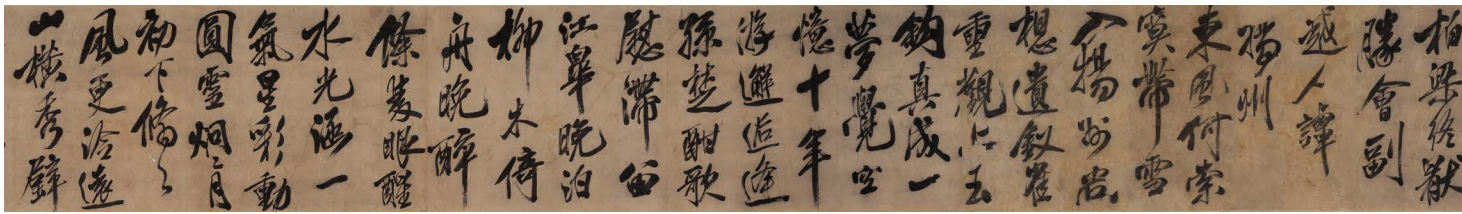 柏梁終獻
會副
越人譚
揚州
東風何索
寞帶雪
入揚州豈
想遺釵
重觀玉
鉤真成一
夢覺空
憶十年
游邂逅逢
孫楚酣歌
慰滯留
江皋晚泊
柳木倚
舟晚醉
餘眼醒
水光涵一
氣星彩動
圓靈炯炯月
初下翛翛
風更泠遠
山橫秀壁